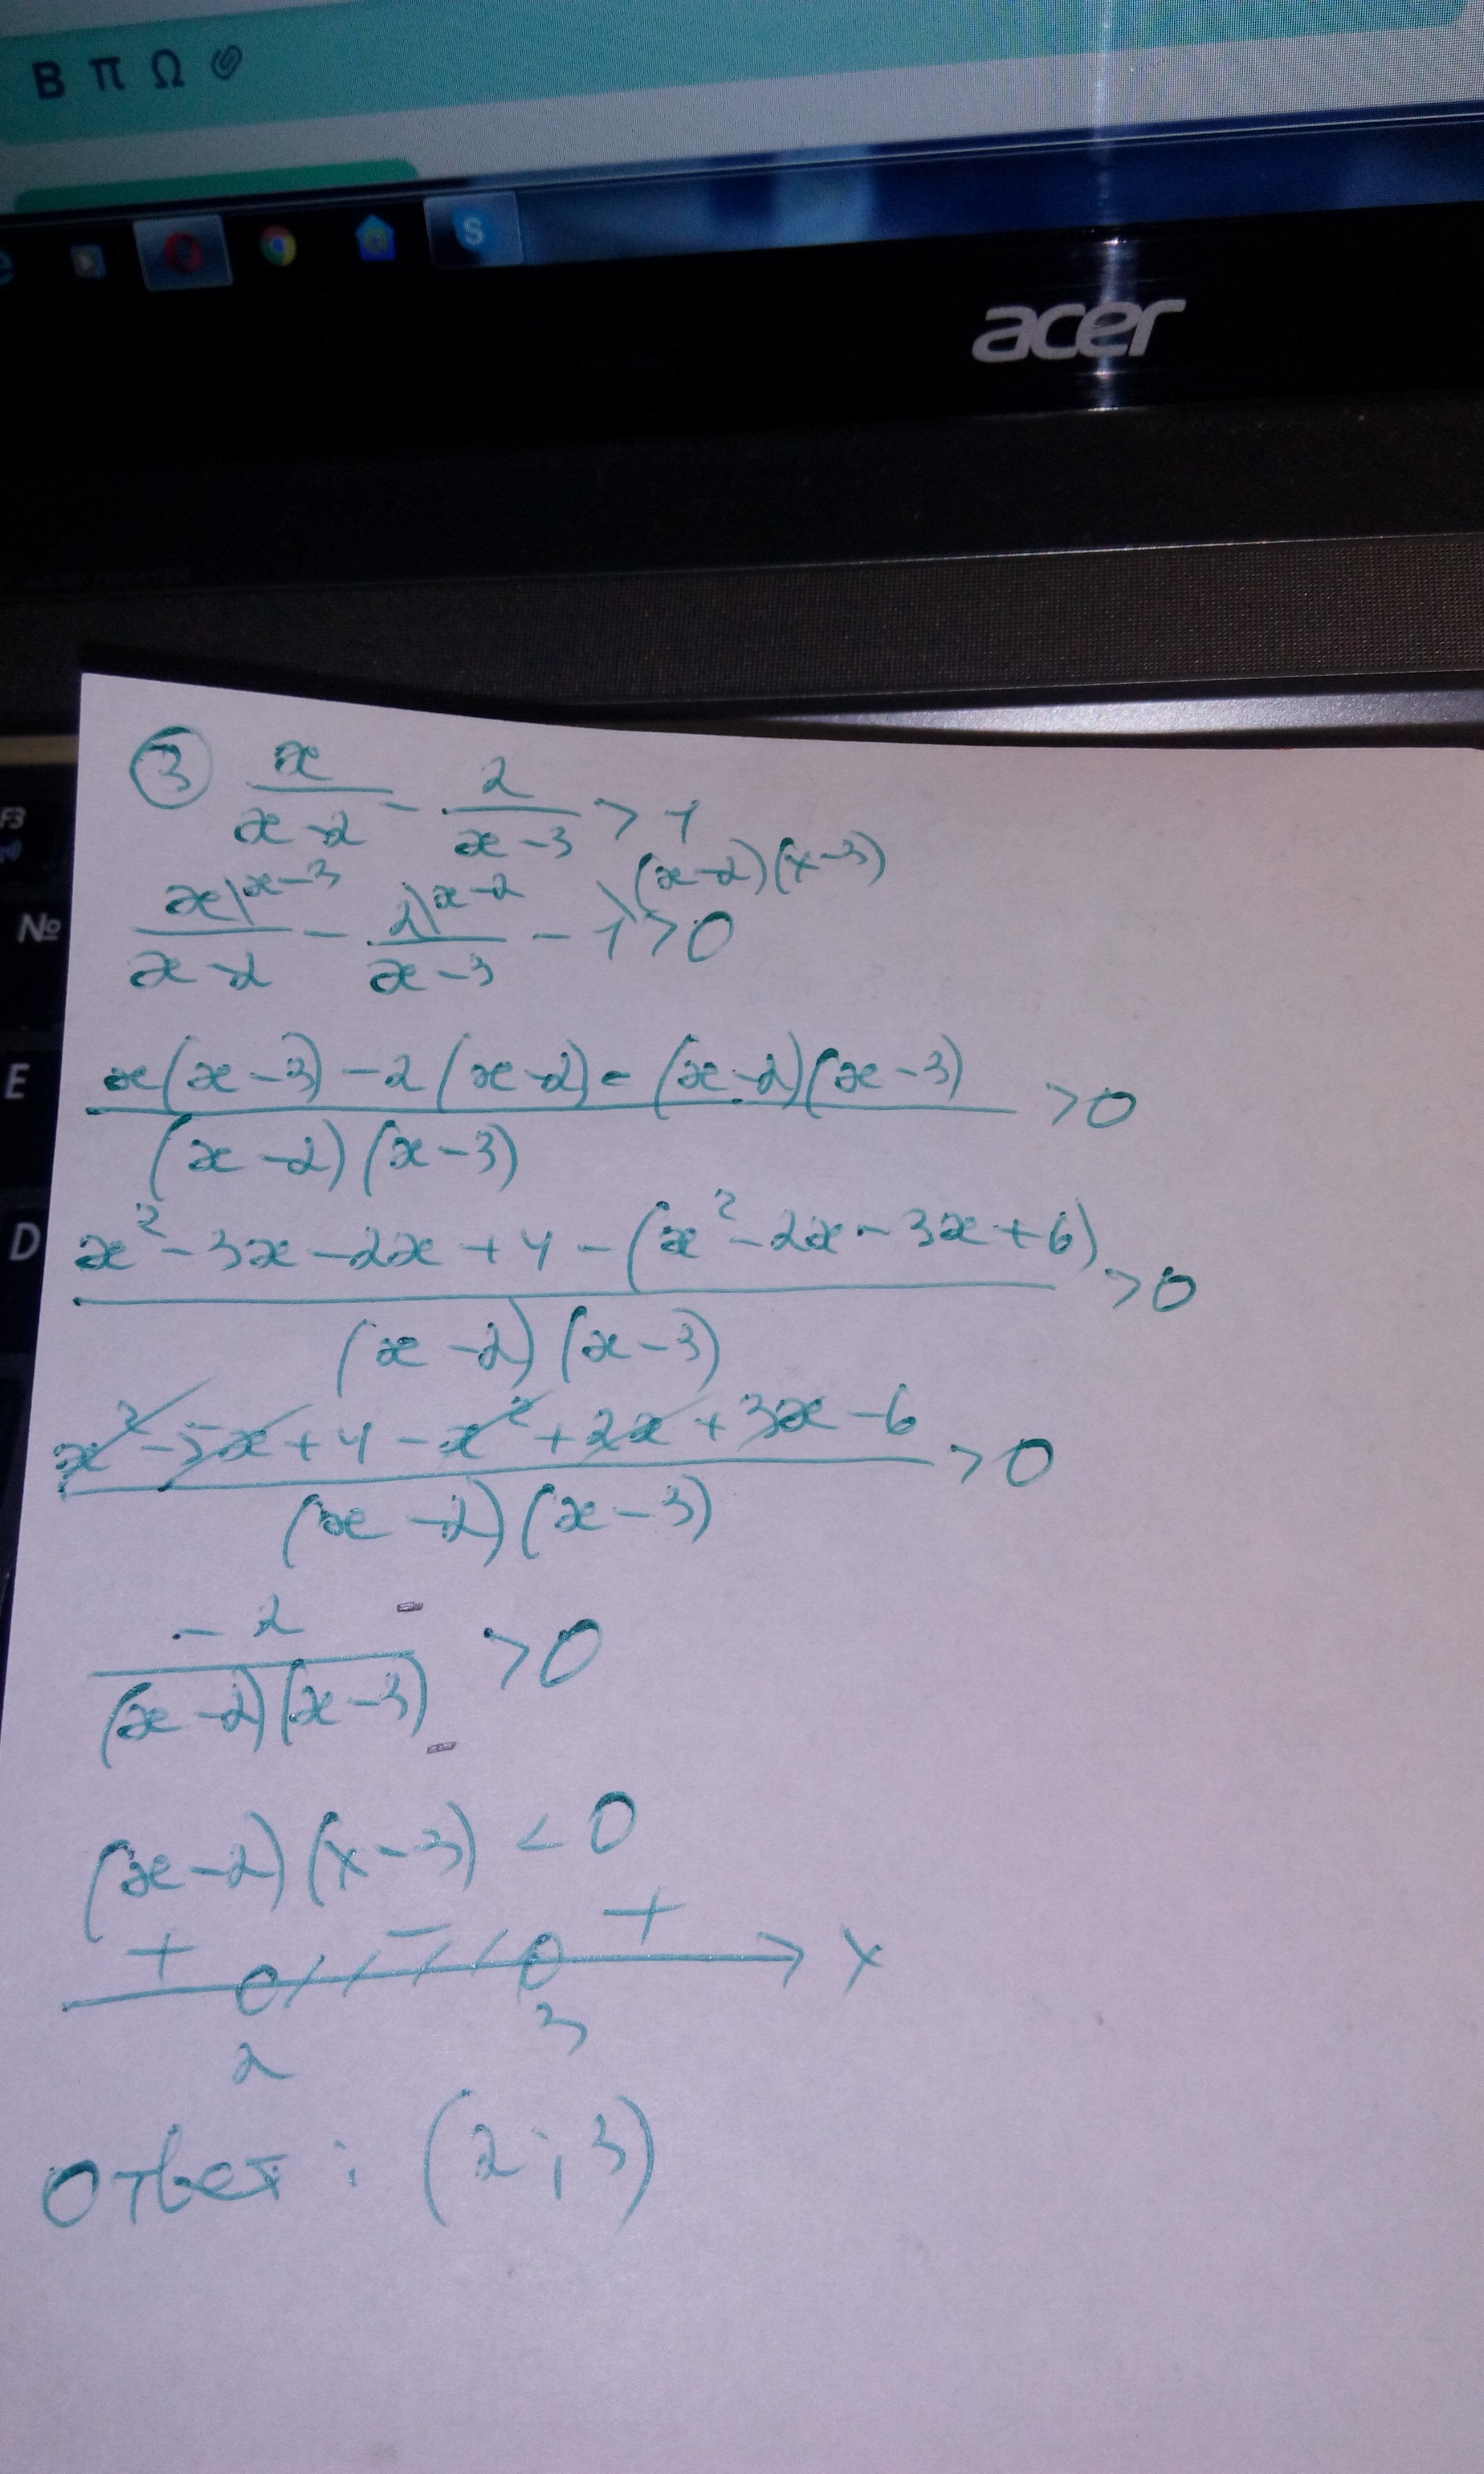 B π Ω
S
acer
F3
№
E
D
③ x/(x-2) - 2/(x-3) > 1
x\x-3/(x-2) - 2\x-2/(x-3) - 1\(x-2)(x-3) > 0
x(x-3)-2(x-2)-(x-2)(x-3)/(x-2)(x-3) > 0
x²-3x-2x+4-(x²-2x-3x+6)/(x-2)(x-3) > 0
x²-5x+4-x²+2x+3x-6/(x-2)(x-3) > 0
-2/(x-2)(x-3) > 0
(x-2)(x-3) < 0
+ - + x
2 3
Ответ: (2;3)